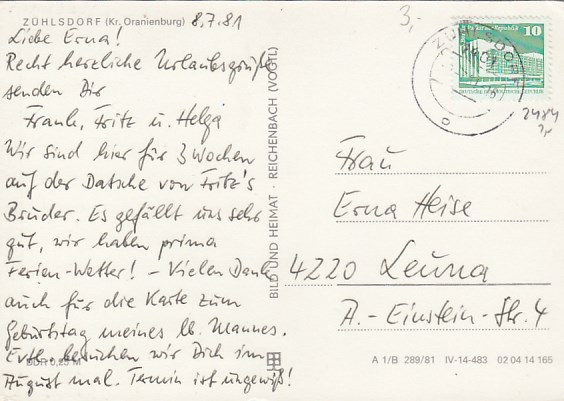 ZÜHLSDORF (Kr. Oranienburg) 8.7.81
3,-
Liebe Erna!
Recht herzliche Urlaubsgrüße
senden Dir
Frank, Fritz u. Helga
Wir sind hier für 3 Wochen
auf der Datsche von Fritz's
Bruder. Es gefällt uns sehr
gut, wir haben prima
Ferien-Wetter! – Vielen Dank
auch für die Karte zum
Geburtstag meines lb. Mannes.
Evtl. besuchen wir Dich im
August mal. Termin ist ungewiß!
BILD UND HEIMAT · REICHENBACH (VOGTL)
10
2484
Frau
Erna Heise
4220 Leuna
A.-Einstein-Str. 4
A 1/B 289/81 IV-14-483 02 04 14 165